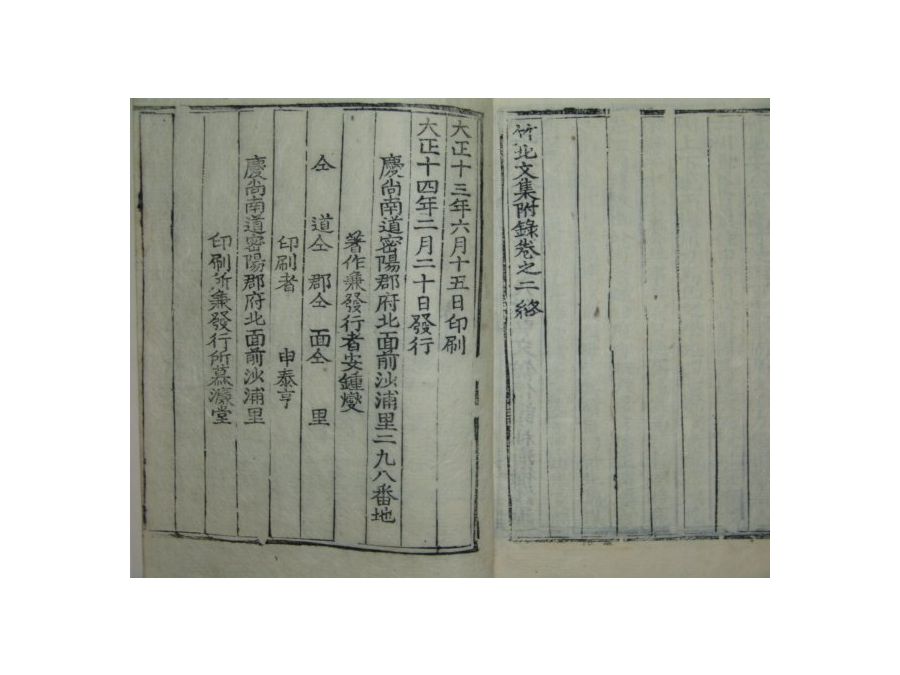 竹北文集附錄卷之二終
大正十三年六月十五日印刷
大正十四年二月二十日發行
慶尙南道密陽郡府北面前沙浦里二九八番地
著作兼發行者安鍾燮
仝 道仝 郡仝 面仝 里
印刷者 申泰亨
慶尙南道密陽郡府北面前沙浦里
印刷所兼發行所慕濂堂